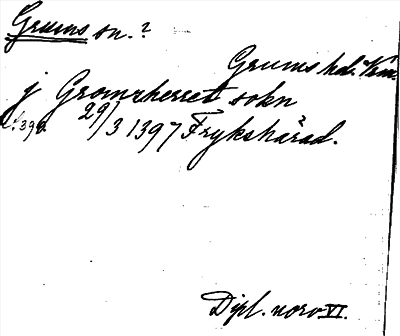 Grums sn.?
Grums hd. Vrm.
j Gromsherret sokn
29/3 1397 Frykshärad.
Dipl. norv VI.